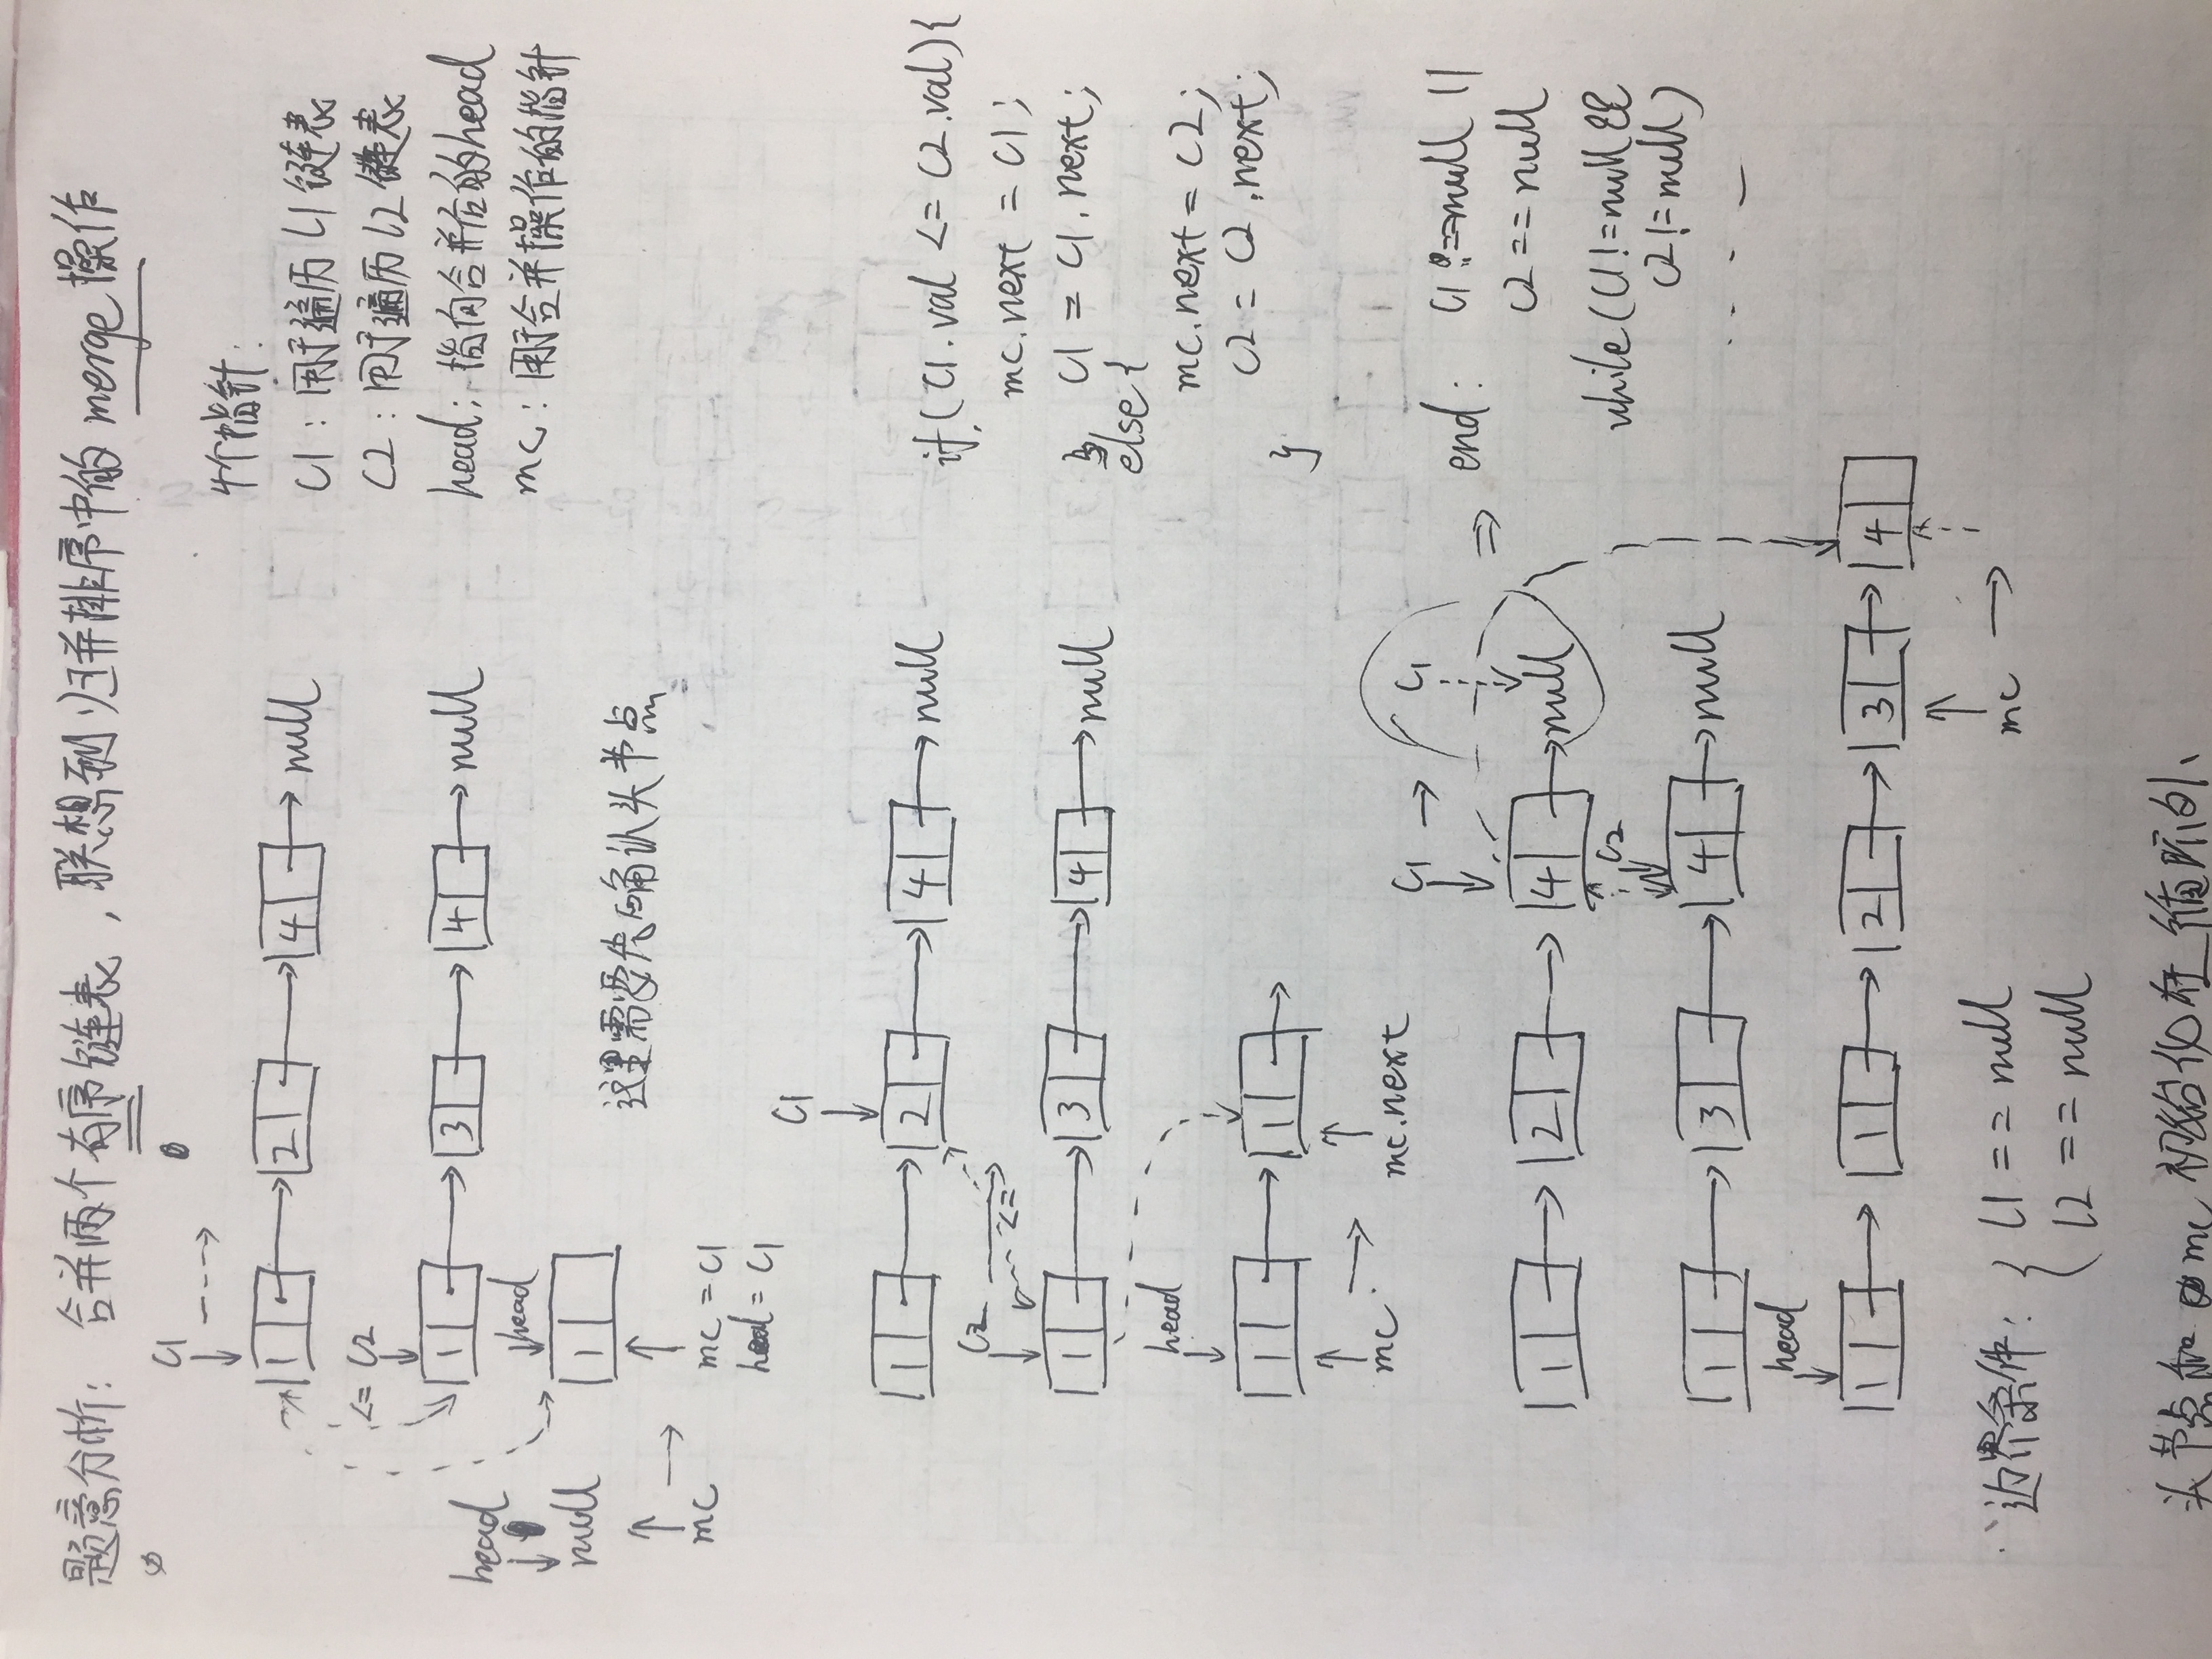 题意分析: 合并两个有序链表, 联想到归并排序中的 merge 操作
c1
1 2 4 null
<= c2
1 3 4 null
head
null
head
1
mc
mc = c1
head = c1
这里需要先确认头节点
4个指针:
c1: 用于遍历 l1 链表
c2: 用于遍历 l2 链表
head: 指向合并后的head
mc: 用于合并操作的指针
c1
1 2 4 null
c2
<=
1 3 4 null
head
1 1
mc mc.next
if (c1.val <= c2.val){
mc.next = c1;
} c1 = c1.next;
else {
mc.next = c2;
c2 = c2.next;
}
c1 c1
1 2 4 null
c2
1 3 4 null
head
1 1 2 3 4
mc
end: c1 == null ||
c2 == null
while (c1 != null &&
c2 != null)
....
边界条件: { l1 == null
l2 == null
头节点和 mc 初始化在循环外